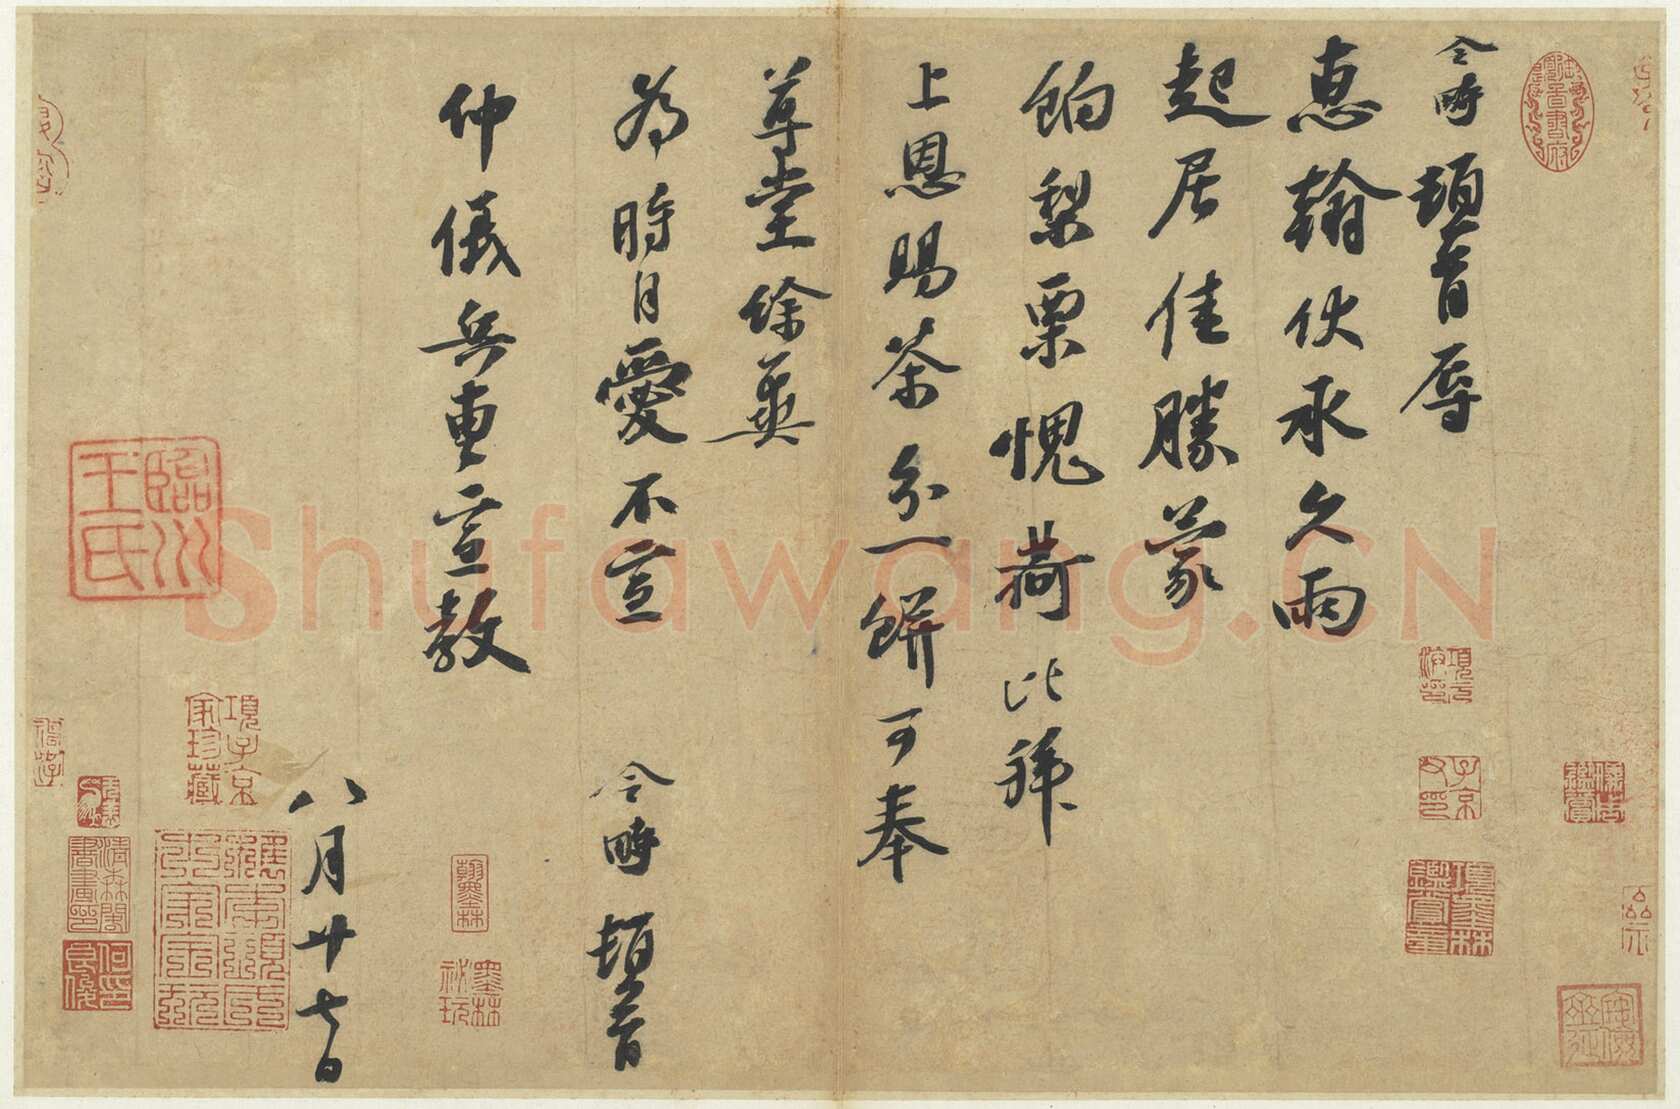 令畤頓首辱
惠翰伏承久雨
起居佳勝蒙
餉梨栗愧荷比拜
上恩賜茶分一餅可奉
尊堂餘冀
為時自愛不宣
令畤頓首
仲儀兵曹宣教
八月廿七日
臨川王氏
項子京家珍藏
項墨林鑒賞章
子京父印
墨林祕玩
Shufawang.CN